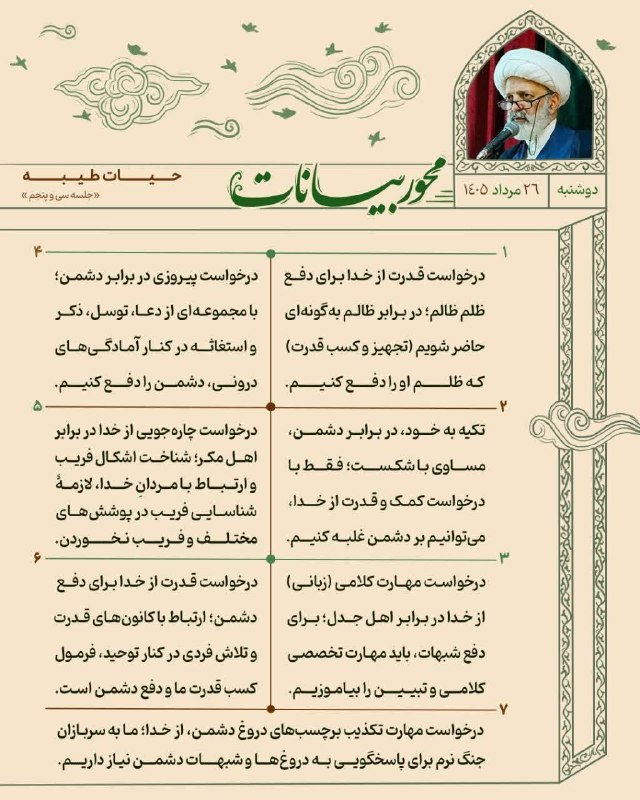 دوشنبه
۲۶ مرداد ۱۴۰۵
محور بیانات
حیات طیبه
«جلسه سی و پنجم»
۱
درخواست قدرت از خدا برای دفع
ظلم ظالم؛ در برابر ظالم به‌گونه‌ای
حاضر شویم (تجهیز و کسب قدرت)
که ظلم او را دفع کنیم.
۲
تکیه به خود، در برابر دشمن،
مساوی با شکست؛ فقط با
درخواست کمک و قدرت از خدا،
می‌توانیم بر دشمن غلبه کنیم.
۳
درخواست مهارت کلامی (زبانی)
از خدا در برابر اهل جدل؛ برای
دفع شبهات، باید مهارت تخصصی
کلامی و تبیین را بیاموزیم.
۴
درخواست پیروزی در برابر دشمن؛
با مجموعه‌ای از دعا، توسل، ذکر
و استغاثه در کنار آمادگی‌های
درونی، دشمن را دفع کنیم.
۵
درخواست چاره‌جویی از خدا در برابر
اهل مکر؛ شناخت اشکال فریب
و ارتباط با مردانِ خدا، لازمهٔ
شناسایی فریب در پوشش‌های
مختلف و فریب نخوردن.
۶
درخواست قدرت از خدا برای دفع
دشمن؛ ارتباط با کانون‌های قدرت
و تلاش فردی در کنار توحید، فرمول
کسب قدرت ما و دفع دشمن است.
۷
درخواست مهارت تکذیب برچسب‌های دروغ دشمن، از خدا؛ ما به سربازان
جنگ نرم برای پاسخگویی به دروغ‌ها و شبهات دشمن نیاز داریم.